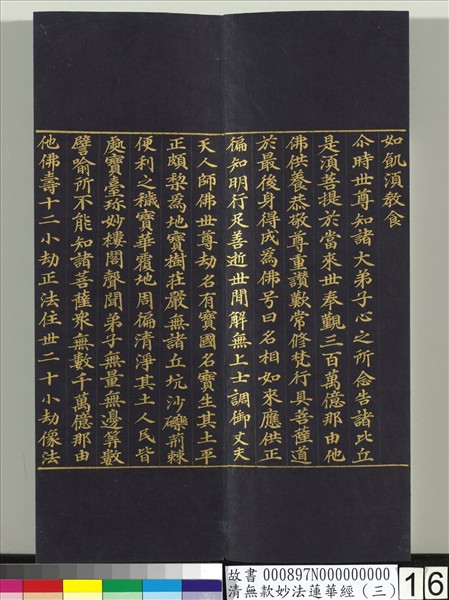 如飢須教食
尒時世尊知諸大弟子心之所念告諸比丘
是須菩提於當來世奉覲三百萬億那由他
佛供養恭敬尊重讚歎常修梵行具菩薩道
於最後身得成為佛号曰名相如來應供正
徧知明行足善逝世間解無上士調御丈夫
天人師佛世尊劫名有寶國名寶生其土平
正頗棃為地寶樹莊嚴無諸丘坑沙礫荊棘
便利之穢寶華覆地周徧清淨其土人民皆
處寶臺珍妙樓閣聲聞弟子無量無邊算數
譬喻所不能知諸菩薩衆無數千萬億那由
他佛壽十二小劫正法住世二十小劫像法
故書 000897N000000000
清無款妙法蓮華經（三）
16